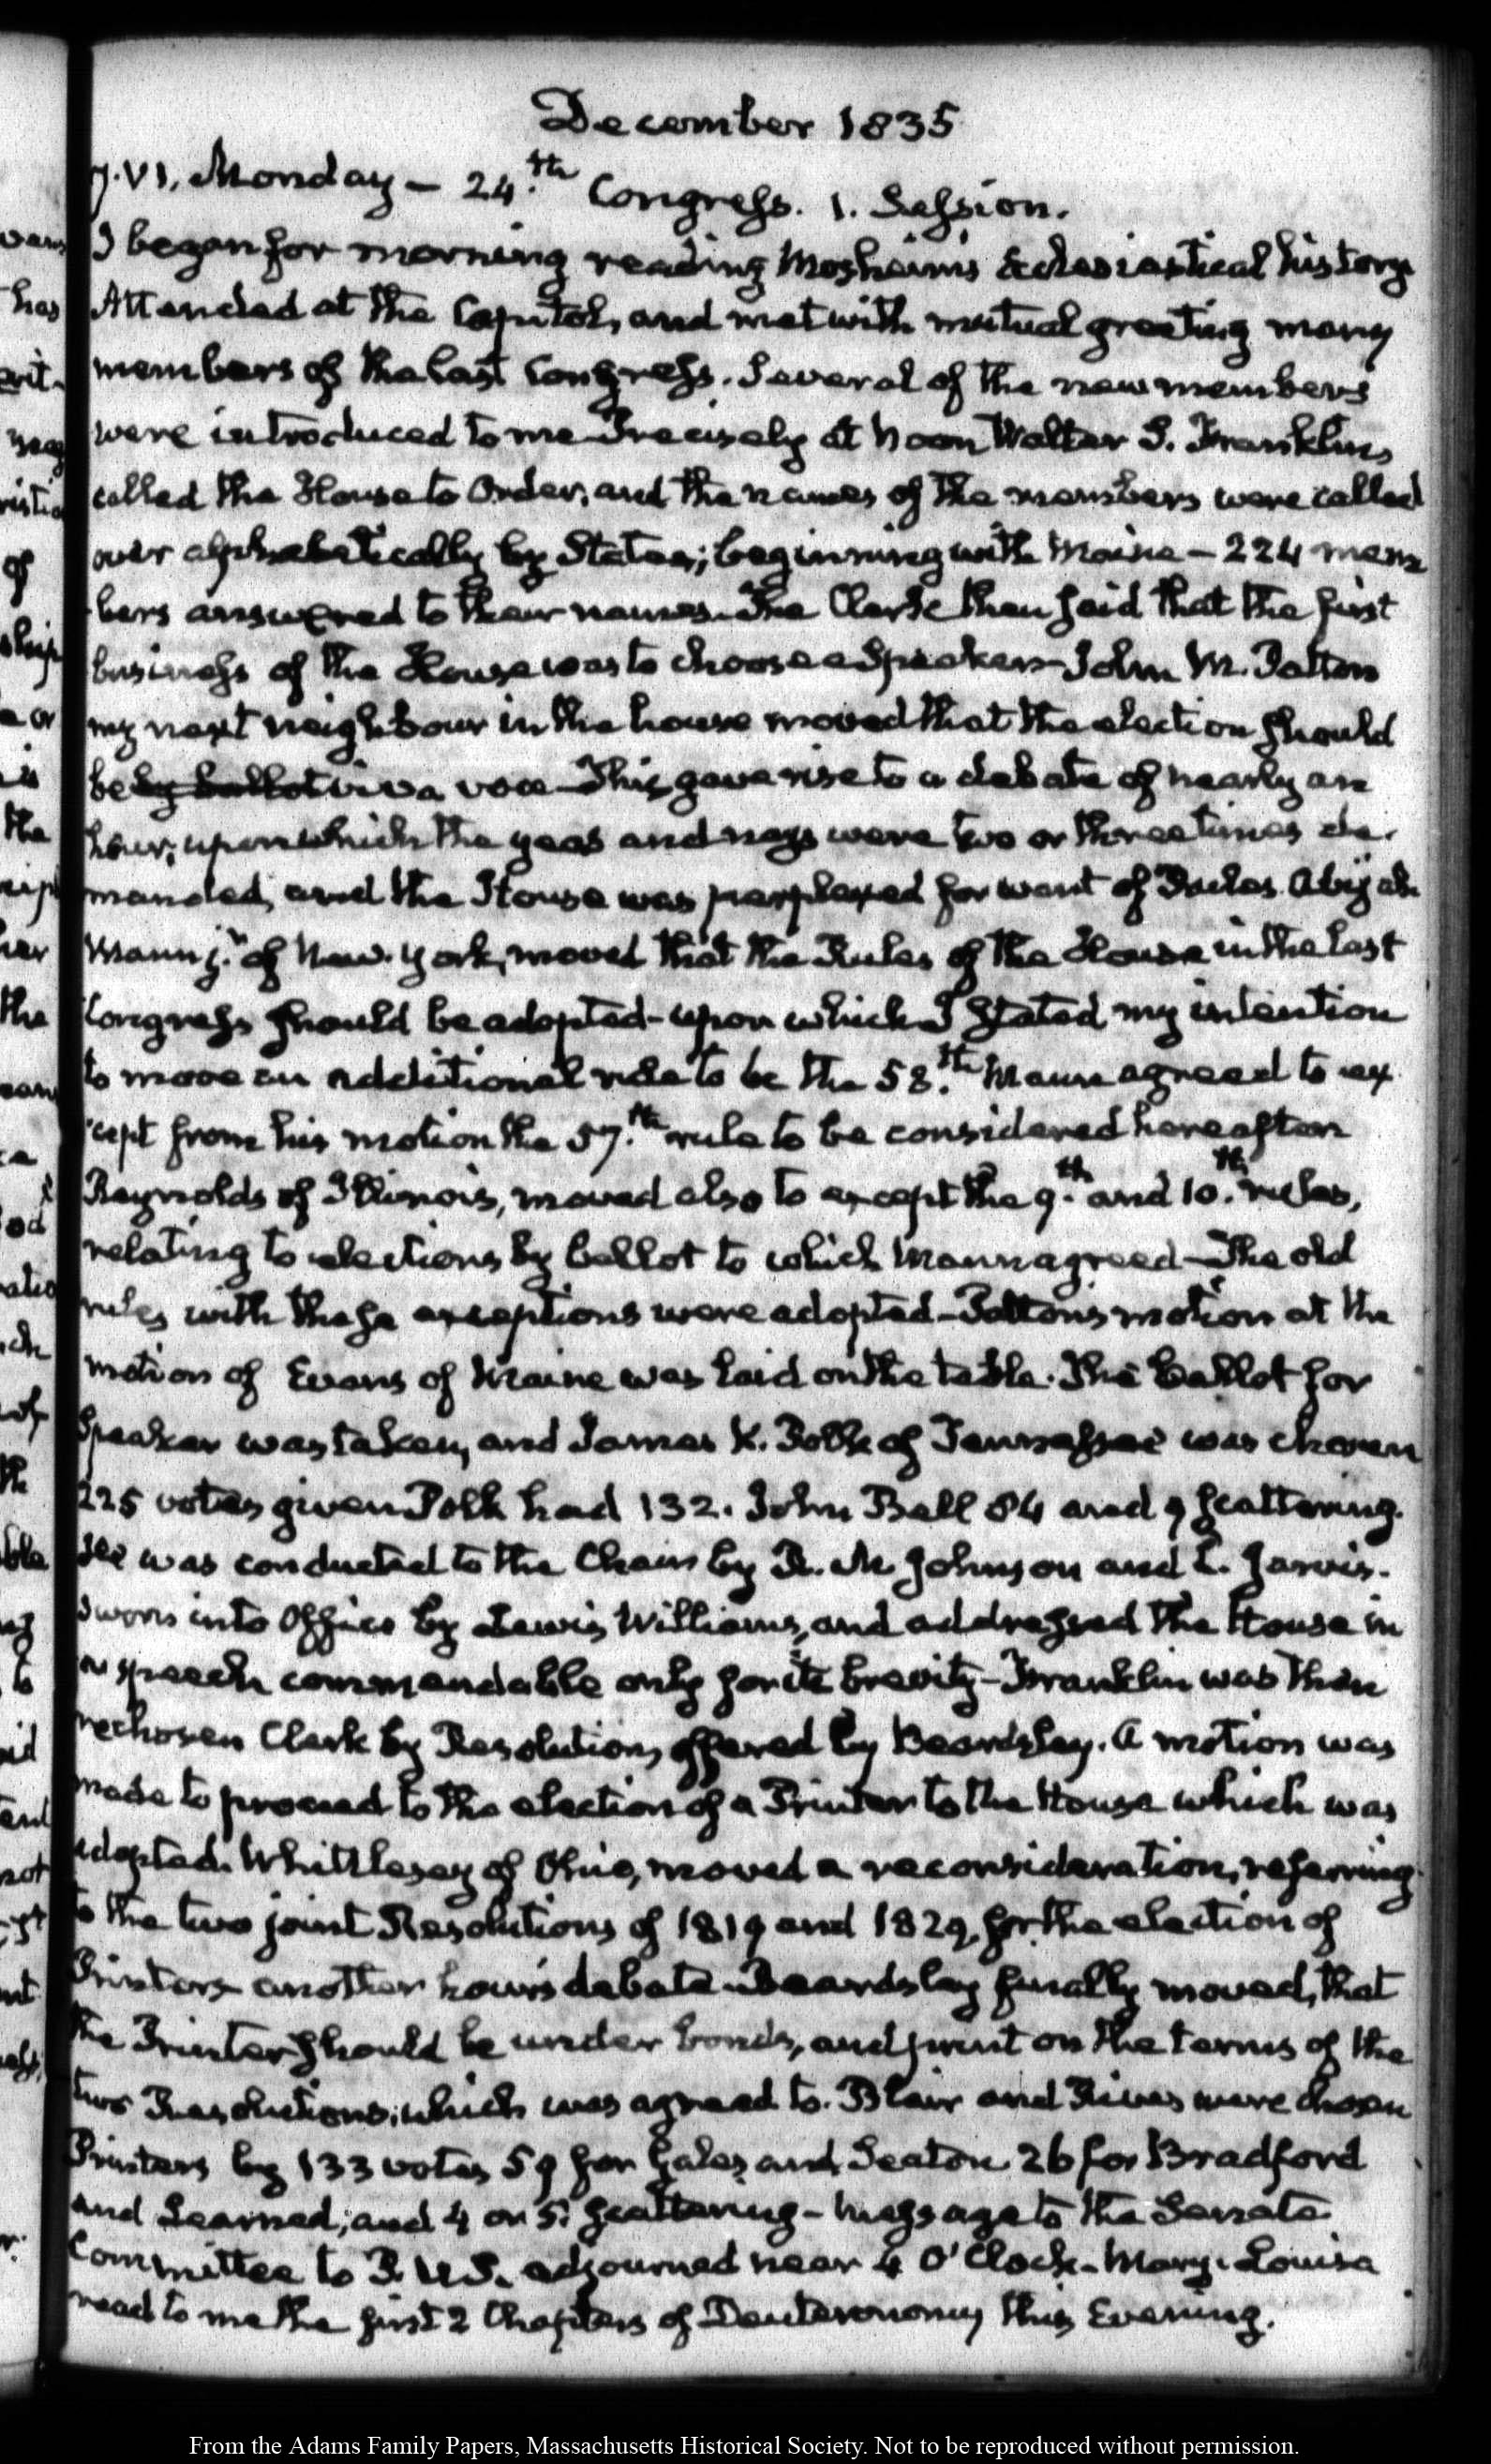 December 1835
7. VI. Monday — 24.th Congress. 1. Session.
I began for morning reading Mosheim's Ecclesiastical history
Attended at the Capitol, and met with mutual greeting many
members of the last Congress. Several of the new members
were introduced to me Precisely at Noon Walter S. Franklin,
called the House to Order, and the names of the members were called
over alphabetically by States; beginning with Maine — 224 mem
bers answered to their names. The Clerk then said that the first
business of the House was to choose a Speaker — John M. Patton
my next neighbour in the house moved that the election should
be by ballot viva voce — This gave rise to a debate of nearly an
hour; upon which the yeas and nays were two or three times de-
manded, and the House was perplexed for want of Rules. Abijah
Mann jr. of New-York, moved that the Rules of the House in the last
Congress should be adopted — upon which I stated my intention
to move an additional rule to be the 58.th Mann agreed to ex
cept from his motion the 57.th rule to be considered hereafter
Reynolds of Illinois, moved also to except the 9.th and 10.th rules,
relating to elections by ballot to which Mann agreed — The old
rules with these exceptions were adopted — Patton's motion at the
motion of Evans of Maine was laid on the table. The ballot for
Speaker was taken, and James K. Polk of Tennessee was chosen
225 votes given Polk had 132. John Bell 84 and 9 scattering.
He was conducted to the Chair by R. M Johnson and L. Jarvis.
Sworn into Office by Lewis Williams, and addressed the House in
a speech commendable only for its brevity — Franklin was then
rechosen Clerk by Resolution, offered by Beardsley. A motion was
made to proceed to the election of a Printer to the House which was
adopted. Whittlesey of Ohio, moved a reconsideration, referring
to the two joint Resolutions of 1819 and 1829, for the election of
Printers — another hour's debate — Beardsley finally moved, that
the Printer should be under bonds, and print on the terms of the
two Resolutions; which was agreed to. Blair and Rives were chosen
Printers by 133 votes 59 for Gales and Seaton 26 for Bradford
and Learned, and 4 or 5 scattering — Message to the Senate
Committee to P. U.S. adjourned near 4 O'Clock — Mary-Louisa
read to me the first 2 Chapters of Deuteronomy this Evening.
From the Adams Family Papers, Massachusetts Historical Society. Not to be reproduced without permission.